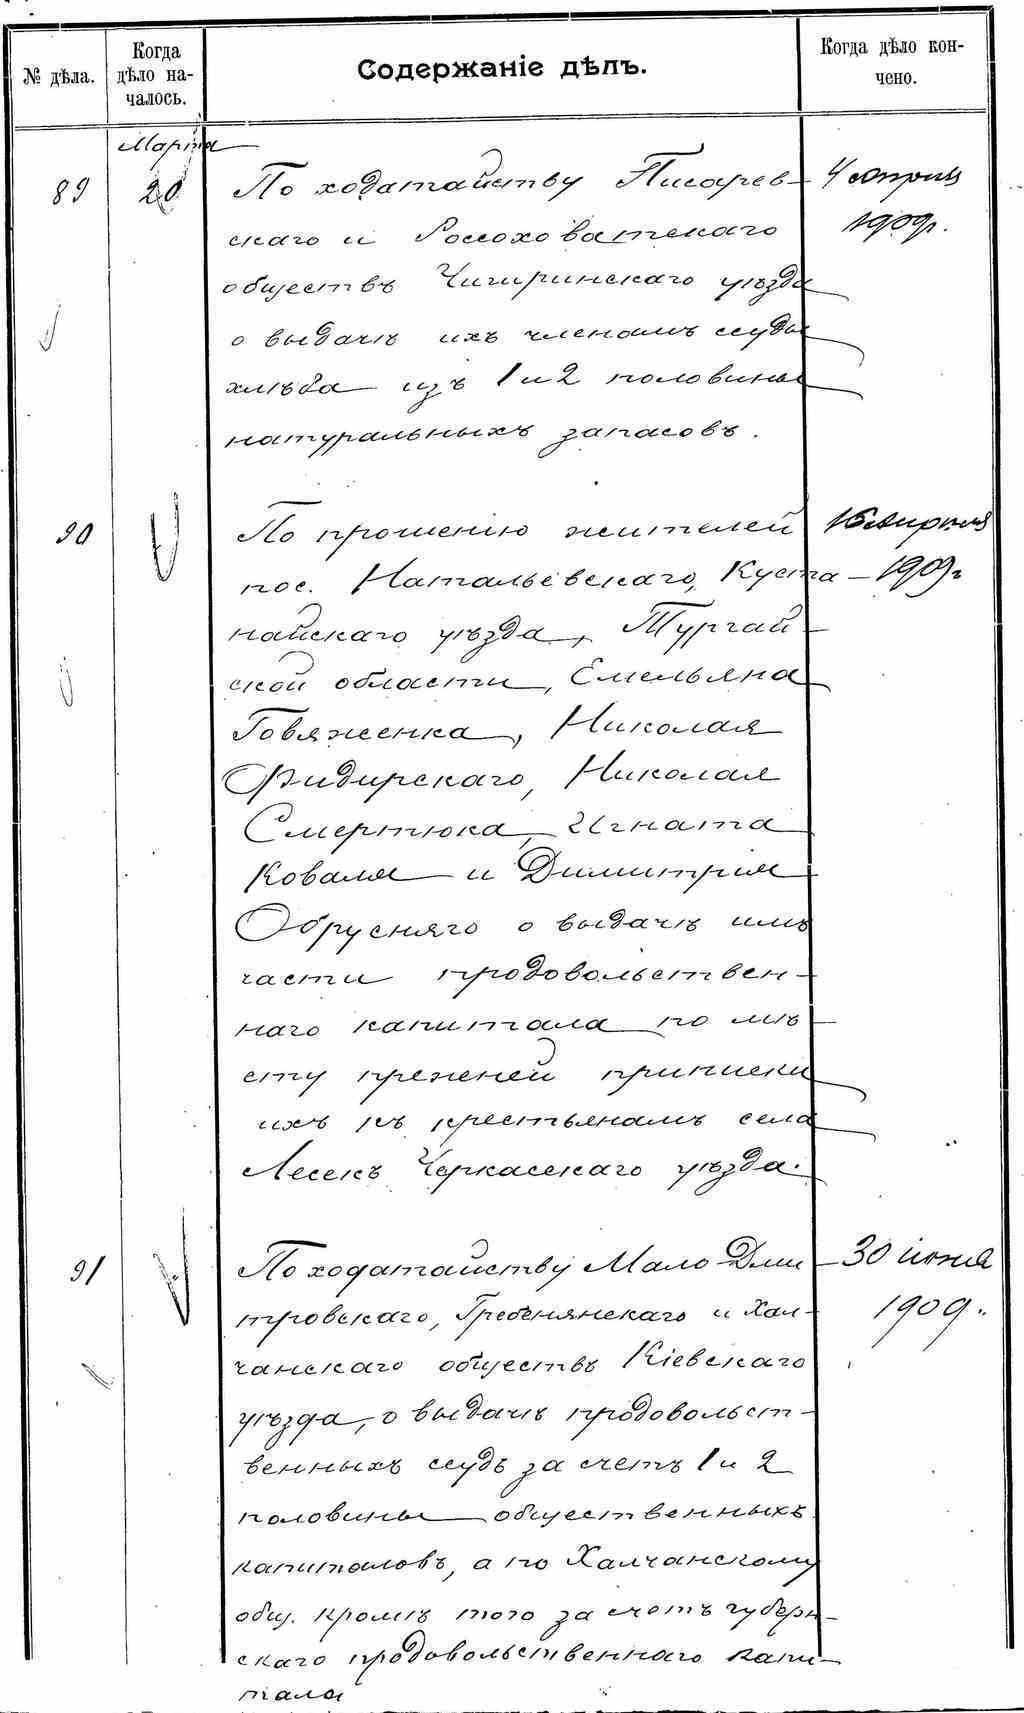 № дѣла. Когда дѣло началось. Содержаніе дѣлъ. Когда дѣло кончено.
Марта
89 20 По ходатайству Писарев- 4 апрѣля
скаго и Россоховатскаго 1909г.
обществъ Чигиринскаго уѣзда
о выдачѣ ихъ членамъ ссуды
хлѣба изъ 1 и 2 половины
натуральныхъ запасовъ.
90 По прошенію жителей 16 Апрѣля
пос. Натальевскаго, Куста- 1909г
найскаго уѣзда, Тургай-
ской области, Емельяна
Говяженка, Николая
Фидирскаго, Николая
Смертюка, Игната
Коваля и Димитрія
Обрусняго о выдачѣ имъ
части продовольствен-
наго капитала по мѣ-
сту прежней приписки
ихъ къ крестьянамъ села
Лесекъ Черкасскаго уѣзда.
91 По ходатайству Мало Дми- 30 июня
тровскаго, Гребенянскаго и Хал- 1909.
чанскаго обществъ Кіевскаго
уѣзда, о выдачѣ продовольст-
венныхъ ссудъ за счетъ 1 и 2
половины общественныхъ
капиталовъ, а по Халчанскому
общ. кромѣ того за счетъ губерн-
скаго продовольственнаго капи-
тала